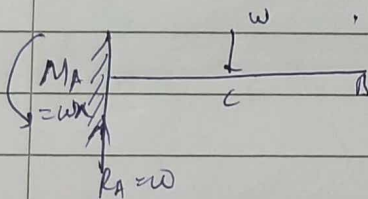 W
MA
= wx
C
B
RA = W